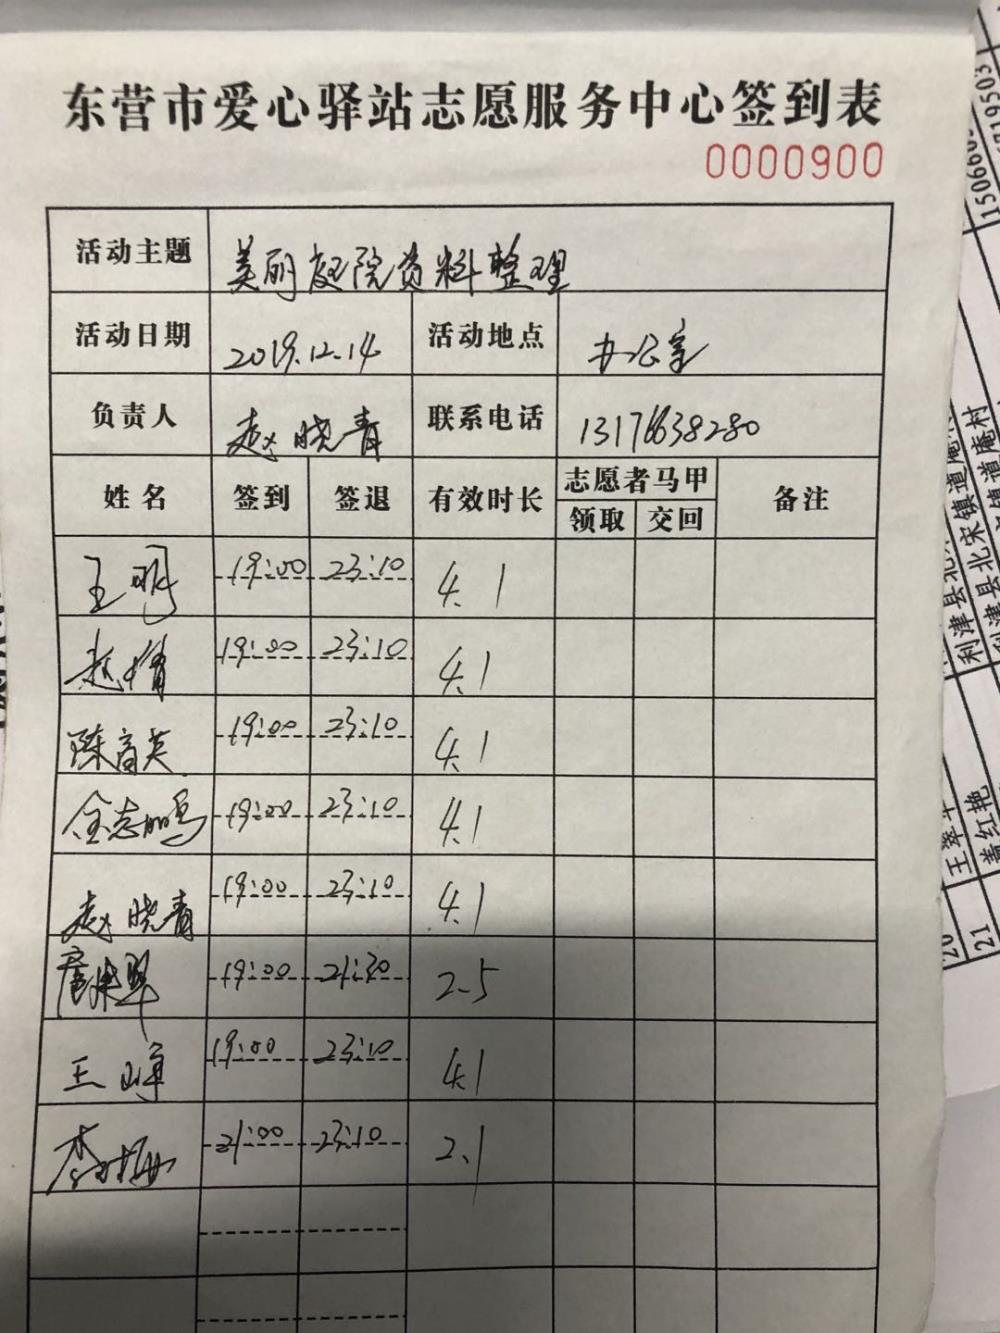 东营市爱心驿站志愿服务中心签到表
0000900
活动主题 美丽庭院资料整理
活动日期 2019.12.14 活动地点 办公室
负责人 赵晓青 联系电话 13176638280
姓名 签到 签退 有效时长 志愿者马甲 备注
领取 交回
王明 19:00 23:10 4.1
赵倩 19:00 23:10 4.1
陈高英 19:00 23:10 4.1
全志鹏 19:00 23:10 4.1
赵晓青 19:00 23:10 4.1
19:00 21:30 2.5
王峥 19:00 23:10 4.1
李 21:00 23:10 2.1
利津县北宋镇道庵村
盖红艳
20
21